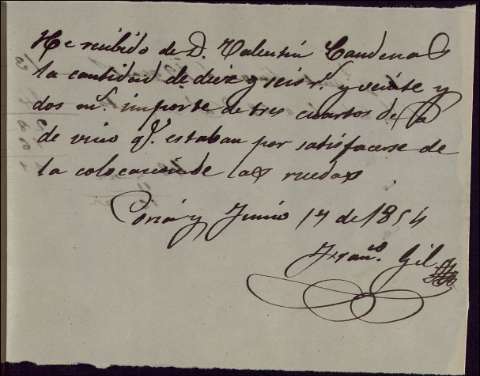 He recibido de D. Valentin Cardenas
la cantidad de diez y seis r.s y veinte y
dos m.s importe de tres cuartos de @
de vino q.e estaban por satisfacerse de
la colocacion de las ruedas
Coria y Junio 17 de 1854
Fran.co Gil